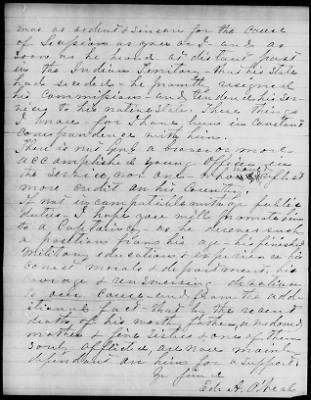 was as ardent & sincere for the cause
of Secession as you or I - and as
soon as he heard at distant post
in the Indian Territory - that his State
had seceded - he promptly resigned
his Commission - and tendered his ser-
vices to his native State - These things
I know - for I have been in constant
correspondence with him.
There is not Genl a braver or more
accomplished young Officer in
the service, nor one - who reflects
more credit on his Country.
If not incompatible with yr public
duties - I hope you will promote him
to a Captaincy - as he deserves such
a position from his age - his finished
Military education & experience his
correct morals & deportment, his
courage & unswerving devotion
to our cause - and from the addi-
tional fact - that by the recent
death of his worthy father, a widowed
mother & five sisters & one of them
sorely afflicted, are now mainly
dependant on him for a support.
Yr friend
Ed. A. O'Neal